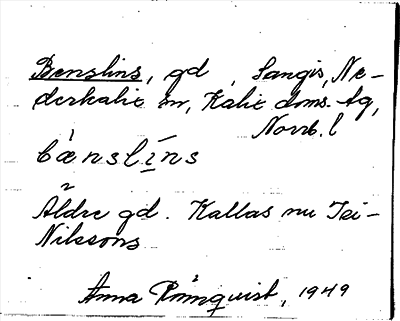 Benslins, gd , Sangis, Ne-
derkalix sn, Kalix doms. tg,
Norrb. l
bænslins
Äldre gd. Kallas nu Isi-
Nilssons
Anna Rönnquist, 1949